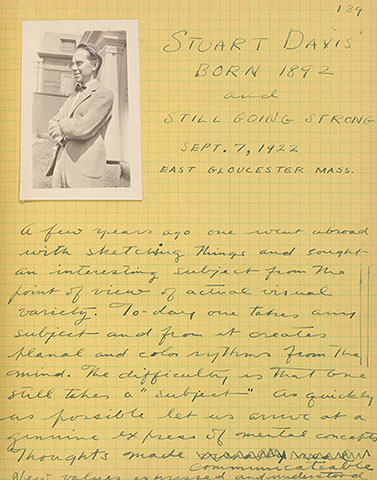 139
STUART DAVIS
BORN 1892
and
STILL GOING STRONG
SEPT. 7, 1922
EAST GLOUCESTER MASS.
A few years ago one went abroad
with sketching things and sought
an interesting subject from the
point of view of actual visual
variety. To-day one takes any
subject and from it creates
planal and color rythms from the
mind. The difficulty is that one
still takes a "subject" As quickly
as possible let us arrive at a
genuine express of mental concepts
Thoughts made
communicateable
New values expressed and understood